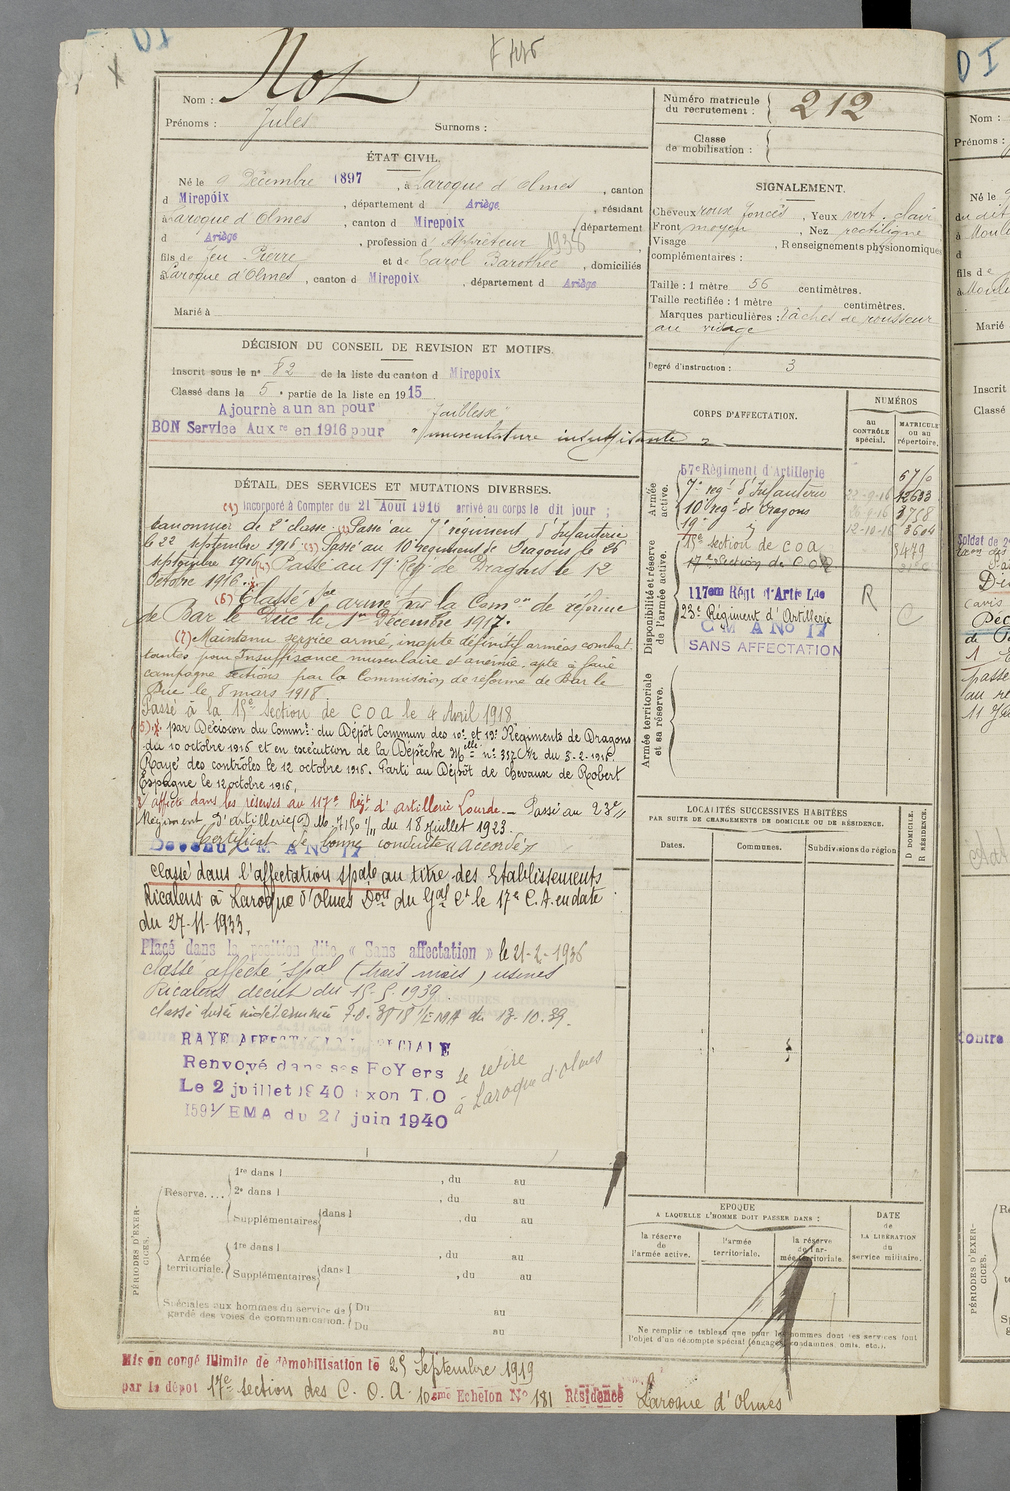 Nom : Not
Prénoms : Jules Surnoms :
Numéro matricule du recrutement : 212
Classe de mobilisation :
ÉTAT CIVIL.
Né le Décembre 1897, à Laroque d'Olmes, canton
d Mirepoix, département d Ariège, résidant
à Laroque d'Olmes, canton d Mirepoix, département
d Ariège, profession d' Appreteur 1938,
fils de feu Pierre et de Carol Barothée, domiciliés
à Laroque d'Olmes, canton d Mirepoix, département d Ariège
Marié à
SIGNALEMENT.
Cheveux roux foncés, Yeux vert clair
Front moyen, Nez rectiligne
Visage , Renseignements physionomiques
complémentaires :
Taille : 1 mètre 56 centimètres.
Taille rectifiée : 1 mètre centimètres.
Marques particulières : tâches de rousseur
au visage
Degré d'instruction : 3
DÉCISION DU CONSEIL DE REVISION ET MOTIFS.
Inscrit sous le n° 82 de la liste du canton d Mirepoix
Classé dans la 5e partie de la liste en 1915
Ajourné a un an pour "faiblesse"
BON Service Auxre en 1916 pour "musculature insuffisante"
CORPS D'AFFECTATION.
NUMÉROS
au CONTRÔLE spécial.
MATRICULE ou au répertoire.
Armée active.
57e Régiment d'Artillerie
7e regt d'Infanterie 22-9-16 12603
10e regt de Dragons 3758
19e " 12-10-16 3604
15e section de C O A 5479
17e Section de C O A
Disponibilité et réserve de l'armée active.
117em Régt d'Artie Lde R
23e Régiment d'Artillerie C
C M A No 17
SANS AFFECTATION
Armée territoriale et sa réserve.
DÉTAIL DES SERVICES ET MUTATIONS DIVERSES.
(1) incorporé à Compter du 21 Août 1916 arrivé au corps le dit jour ;
canonnier de 2e classe. Passé au 7e régiment d'Infanterie
le 22 septembre 1916 (3) Passé au 10e régiment de Dragons le 26
septembre 1916 Passé au 19e Reg. de Dragons le 12
Octobre 1916.
(6) Classé Sce armé par la Comon de réforme
de Bar le Duc le 1er Décembre 1917.
(7) Maintenu service armé, inapte définitif armées combat-
tantes pour Insuffisance musculaire et anémie, apte à faire
campagne sections par la Commission de réforme de Bar le
Duc le 8 mars 1918.
Passé à la 15e section de C O A le 4 Avril 1918
5) x par Décision du Commt du Dépôt Commun des 10e et 19e Régiments de Dragons
du 10 octobre 1916 et en exécution de la Dépêche Melle n° 337 du 5-2-1916.
Rayé des contrôles le 12 octobre 1916. Parti au Dépôt de chevaux de Robert
Espagne le 12 octobre 1916.
affecté dans les réserves au 117e Regt d'artillerie Lourde. — Passé au 23e
Régiment d'artillerie du 18 juillet 1923.
Certificat de bonne conduite "accordé"
Devenu C M A No 17
Classé dans l'affectation spale au titre des Etablissements
Ricalens à Laroque d'Olmes Don du Gal Ct le 17e C. A. en date
du 27-11-1933.
Placé dans la position dite « Sans affectation » le 21-2-1936
classé affecté spal (trois mois) usines
Ricalens décret du 15-5-1939.
classé durée indéterminée EMA du 13-10.39.
RAYE AFFECTATION SPECIALE
Renvoyé dans ses FoYers se retire
Le 2 juillet 1940 T.O à Laroque d'olmes
1591/EMA du 27 juin 1940
LOCALITÉS SUCCESSIVES HABITÉES
PAR SUITE DE CHANGEMENTS DE DOMICILE OU DE RÉSIDENCE.
Dates. Communes. Subdivisions de région D DOMICILE. R RÉSIDENCE.
PÉRIODES D'EXERCICES.
Réserve....
1re dans l , du au
2e dans l , du au
Supplémentaires dans l , du au
Armée territoriale.
1re dans l , du au
Supplémentaires dans l , du au
Spéciales aux hommes du service de garde des voies de communication.
Du au
Du au
EPOQUE
A LAQUELLE L'HOMME DOIT PASSER DANS :
la réserve de l'armée active.
l'armée territoriale.
la réserve de l'armée territoriale
DATE de LA LIBÉRATION du service militaire.
Ne remplir ce tableau que pour les hommes dont les services font
l'objet d'un décompte spécial (engagés, condamnés, omis, etc.).
Mis en congé illimité de démobilisation le 25 Septembre 1919
par le dépot 17e section des C. O. A. 10ème Echelon No 181 Résidence Laroque d'Olmes